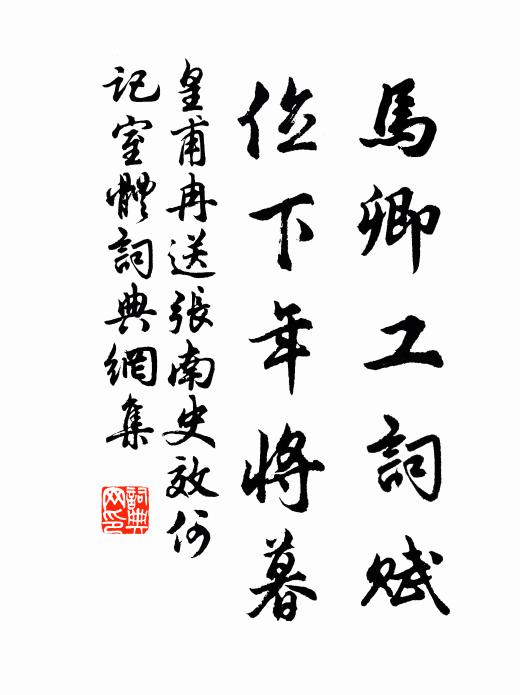 馬卿工詞賦
位下年將暮
皇甫冉送張南史效何
記室體詞典網集
詞典
网印